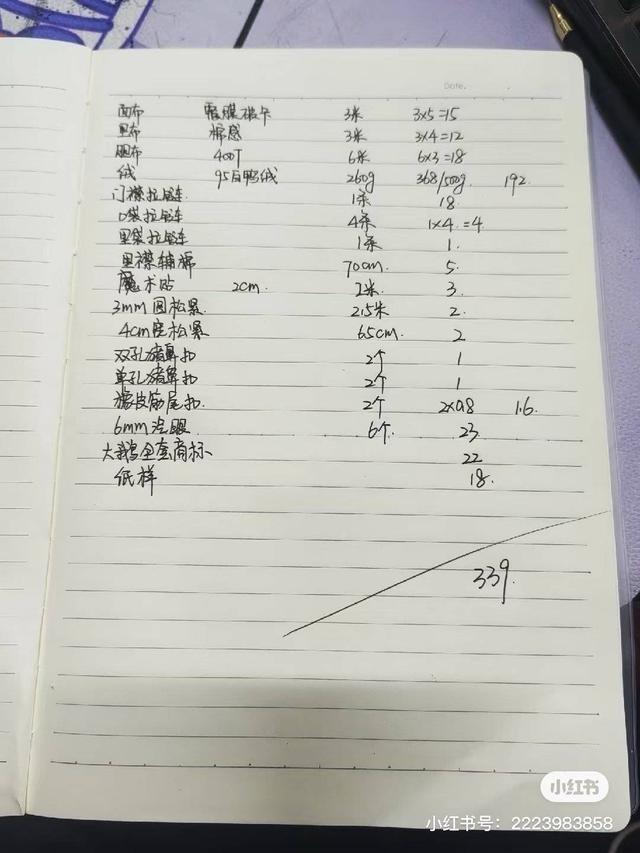 Date.
面布 覆膜福卡 3米 3×5=15
里布 棉感 3米 3×4=12
胆布 400T 6米 6×3=18
绒 95白鸭绒 260g 368/500g 192
门襟拉链 1条 18
口袋拉链 4条 1×4=4
里袋拉链 1条 1.
里襟辅棉 70cm. 5.
魔术贴 2cm. 1米 3.
3mm圆松紧 2.5米 2.
4cm宽松紧 65cm. 2
双孔猪鼻扣 2个 1
单孔猪鼻扣 2个 1
橡皮筋尾扣. 2个 2×0.8 1.6.
6mm汽眼 6个. 23
大鹅全套商标 22
纸样 18.
339.
小红书
小红书号：2223983858